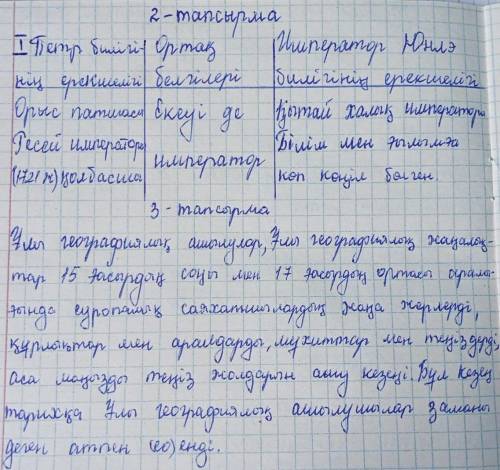 2-тапсырма
I Петр билігі- Ортақ Император Юнлэ
нің ерекшелігі белгілері билігінің ерекшелігі
Орыс патшасы Екеуі де Қытай халық императоры
Ресей императоры император Білім мен ғылымға
(1721 ж) қолбасшы көп көңіл бөлген.
3-тапсырма
Ұлы географиялық ашылулар, Ұлы географиялық жаңалық-
тар 15 ғасырдың соңы мен 17 ғасырдың ортасы аралы-
ғында еуропалық саяхатшылардың жаңа жерлерді,
құрлықтар мен аралдарды, мұхиттар мен теңіздерді,
аса маңызды теңіз жолдарын ашу кезеңі. Бұл кезең
тарихқа Ұлы географиялық ашылушылар заманы
деген атпен енді.